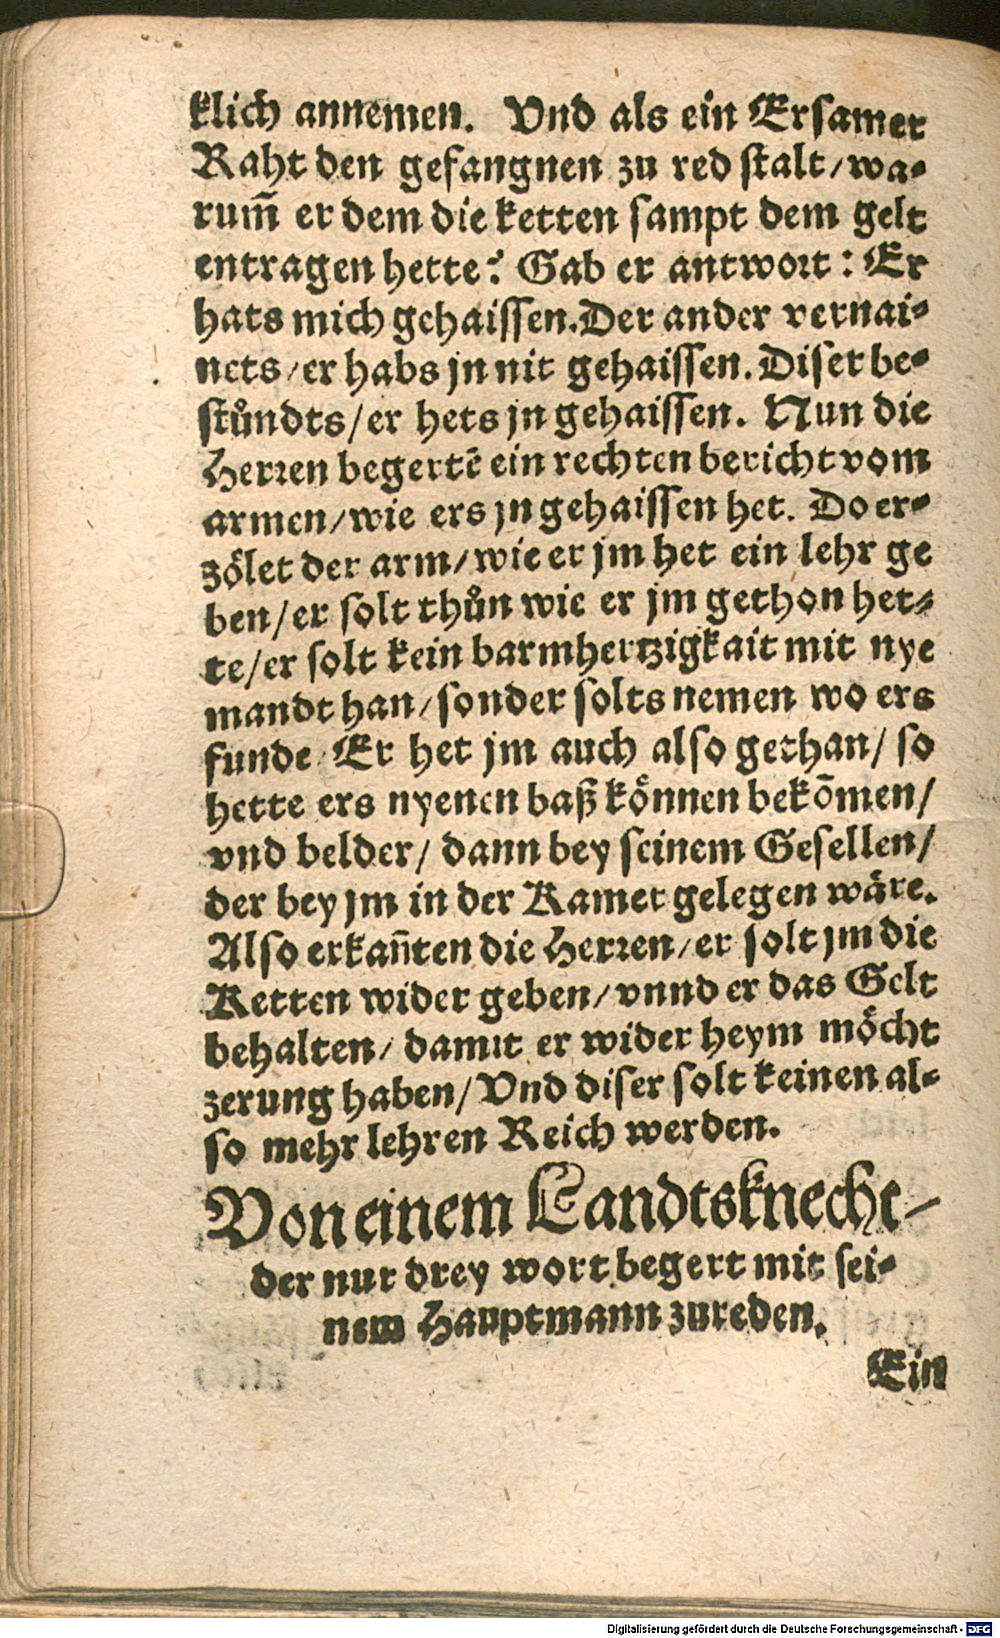 klich annemen. Vnd als ein Ersamer
Raht den gefangnen zu red stalt/wa-
rum̃ er dem die ketten sampt dem gelt
entragen hette? Gab er antwort: Er
hats mich gehaissen. Der ander vernai-
nets/er habs jn nit gehaissen. Diser be-
stůndts/er hets jn gehaissen. Nun die
Herren begertẽ ein rechten bericht vom
armen/wie ers jn gehaissen het. Do er-
zölet der arm/wie er jm het ein lehr ge
ben/er solt thůn wie er jm gethon het-
te/er solt kein barmhertzigkait mit nye
mandt han/sonder solts nemen wo ers
funde Er het jm auch also gethan/ so
hette ers nyenen baß können bekõmen/
vnd belder/ dann bey seinem Gesellen/
der bey jm in der Kamer gelegen wäre.
Also erkañten die Herren/er solt jm die
Ketten wider geben/vnnd er das Gelt
behalten/ damit er wider heym möcht
zerung haben/Vnd diser solt keinen al-
so mehr lehren Reich werden.
Von einem Landtsknecht/
der nur drey wort begert mit sei-
nem Hauptmann zureden.
Ein
Digitalisierung gefördert durch die Deutsche Forschungsgemeinschaft - DFG